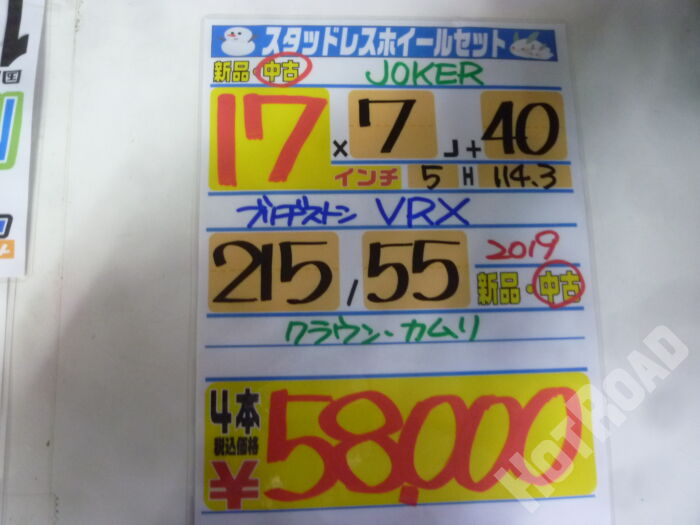 スタッドレスホイールセット
新品・中古 JOKER
17 × 7 J + 40
インチ 5 H 114.3
ブリヂストン VRX
215 / 55 2019
新品・中古
クラウン・カムリ
4本
税込価格
¥58,000
HOT ROAD